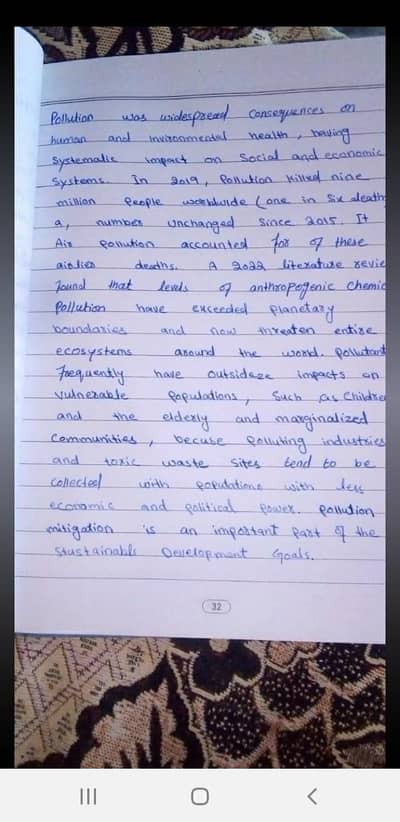 Pollution was widespread Consequences on
human and invironmental health, having
Systematic impact on Social and economic
Systems. In 2019, Pollution killed nine
million People worldwide (one in Six death
a, number unchanged Since 2015. It
Air pollution accounted for of these
deaths. A 2022 literature revie
found that levels of anthropogenic Chemic
Pollution have exceeded planetary
boundaries and now threaten entire
ecosystems around the world. pollutant
Frequently have outsideze impacts on
vulnerable populations, Such as Childre
and the elderly and marginalized
Communities, becuse polluting industries
and toxic waste sites tend to be
Collected with populations with less
economic and political power. pollution
mitigation is an important part of the
Sustainable Development Goals.
32